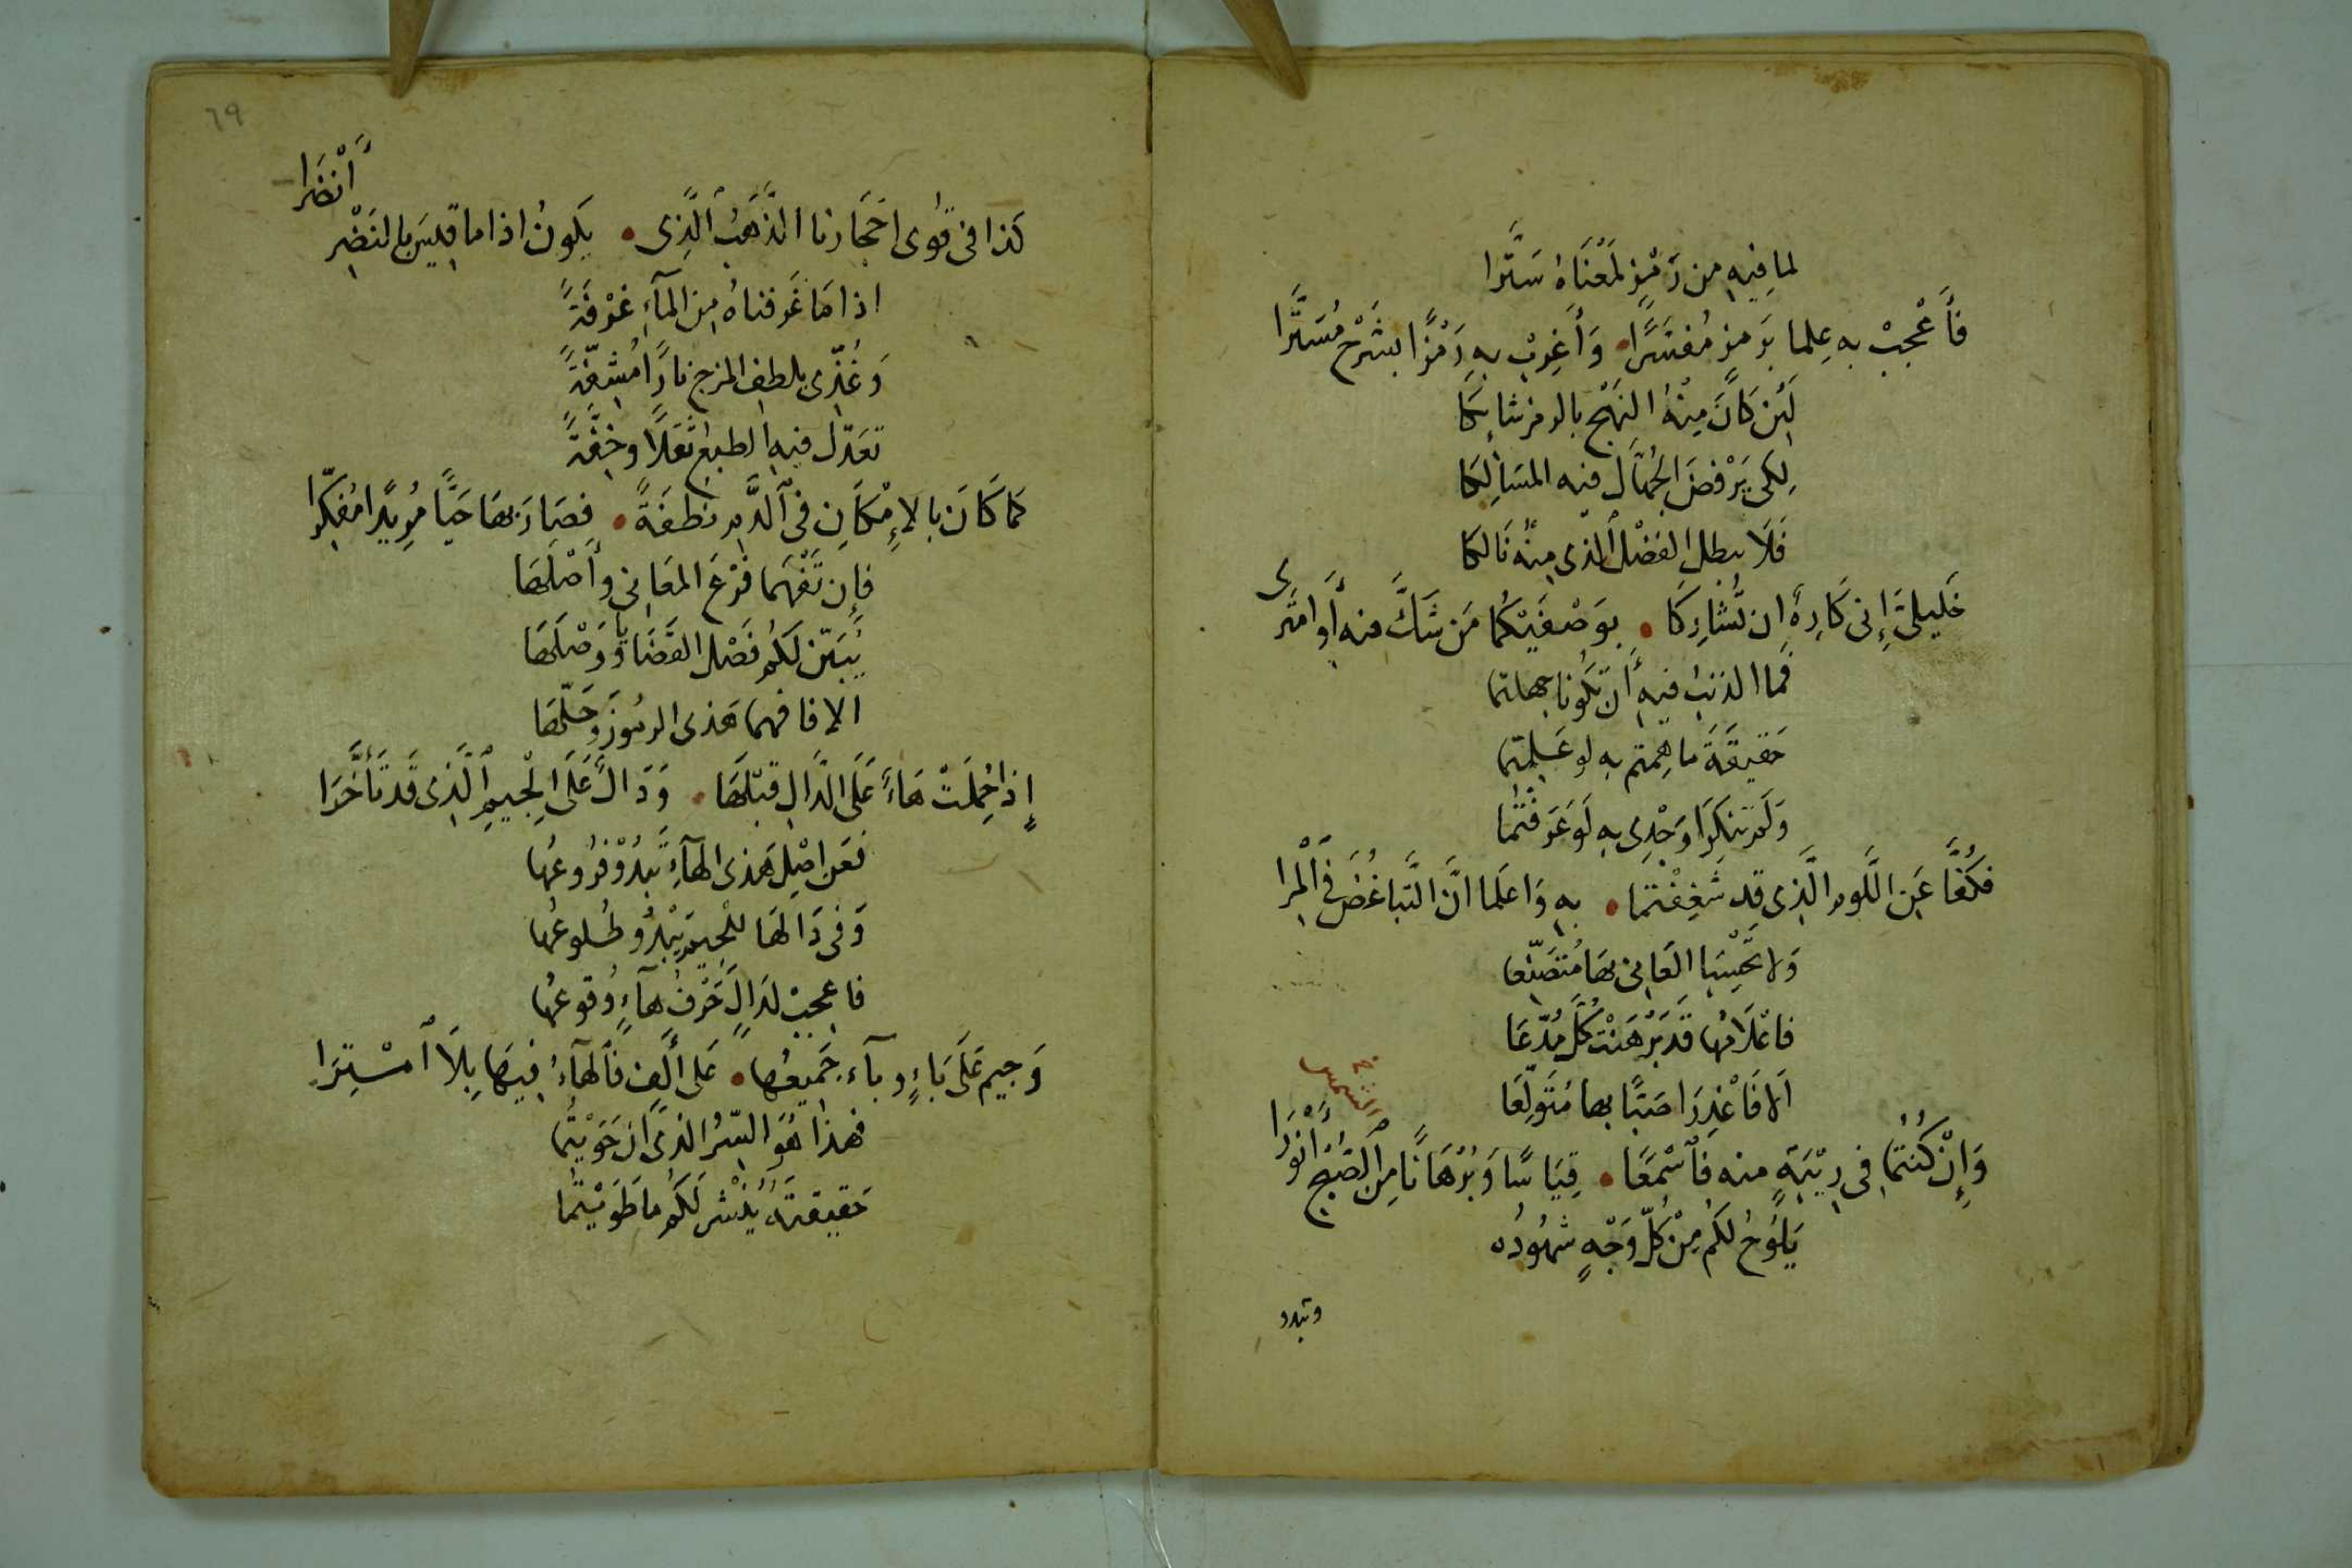 لما فِيهِ من رَمْزٍ لمَعْنَاهُ سَتَّرا
فَأَعْجِبْ بهِ عِلما بِرَمزٍ مُفَسَّرًا • وَأَغرِبْ بهِ رَمْزًا بشَرْحٍ مُسَتَّرا
لَئِن كَانَ مِنْهُ النَهْج بالرمز شائِكَا
لِكَى يَرْفضَ الجُهّالُ فيه المسَالِكَا
فَلَا يبطل الفَضْل الذى مِنْهُ نَالكَا
خَليلىَّ إِنى كَارِهٌ ان تُشارِكَا • بوَصْفَيْكُما مَن شَكَّ فيه أَو امتَرى
فَما الذنب فيهِ أَن تكُونا جهلتما
حَقيقَةَ ما هِمتم بهِ لو عَلِمتما
وَلَم تنكِرَا وَجْدِى بهِ لَو عَرَفتُما
فكُفَّا عَنِ اللَّومِ الَّذِى قد شُغِفْتُمَا • بهِ وَاعلما انَّ التَّباغُضَ فِى اَلْمِرا
وَلا تَحْسِبَا العَانِى بهَا مُتَصَنِّعا
فاعْلَامُها قَد بَرْهَنَتْ كُلَّ مُدَّعَا
اَلا فَاعْذِرَا صَبًّا بها مُتَوَلِّعَا
الشمس خ
وَإِنْ كُنْتُمَا فِى رِيْبَةٍ منه فَٱسْمَعَا • قِيَاسًا وَبُرْهَانًا مِنَ الصُبْحِ أَنْوَرَا
يَلُوحُ لكُم مِنْ كُلِّ وَجْهٍ شُهُوْدُه
وتبدو
٦٩
كَذا فى قُوى احْجَارِنا الذَّهَبُ ٱلَّذِى • يَكونُ اذا ما قِيسَ بالنَضْرِ أَنْضَرا
اذا مَا غَرفناهُ مِنَ المآءِ غَرْفَةً
وَغُذِّى بلطف المزج نارًا مُشِفَّةً
تعَدّل فيه الطبع ثقلًا وخِفَّةً
كَما كَانَ بالإِمْكَانِ فى ٱلدَّمِ نطفَةً • فصَارَ بهَا حَيًّا مُرِيدًا مُفكِّرا
فإن تَفْهَما فَرْعَ المعَانِى وأَصْلَهَا
يُبَيّن لكُم فَصْل القَضَايا وَوَصْلَهَا
الا فافهما هَذى الرمُوزَ وَحَلّهَا
إِذا حُمِلَتْ هَاءٌ عَلَى الدَّالِ قبْلَهَا • وَدَالٌ عَلَى اِلْجيمِ ٱلَّذِى قَد تَأَخَّرَا
فعَن اصْلِ هَذى الهَآءِ تَبْدُوْ فُرُوعُها
وَفى دَالهَا للجِيم يَبْدُو طُلوعُها
فاعجبْ لدَالٍ حَرْفُ هآءٍ وُقوعُها
وَجيم عَلَى بَاءٍ وبآء جَميعُها • عَلى أَلِفٍ فَٱلهَآءُ فِيهَا بِلَا ٱمْتِرَا
فهذا هُوَ السّرُ الذى ان حَوَيْتُما
حَقيقتَهُ يُنْشَر لَكُم مَا طَوَيْتُما